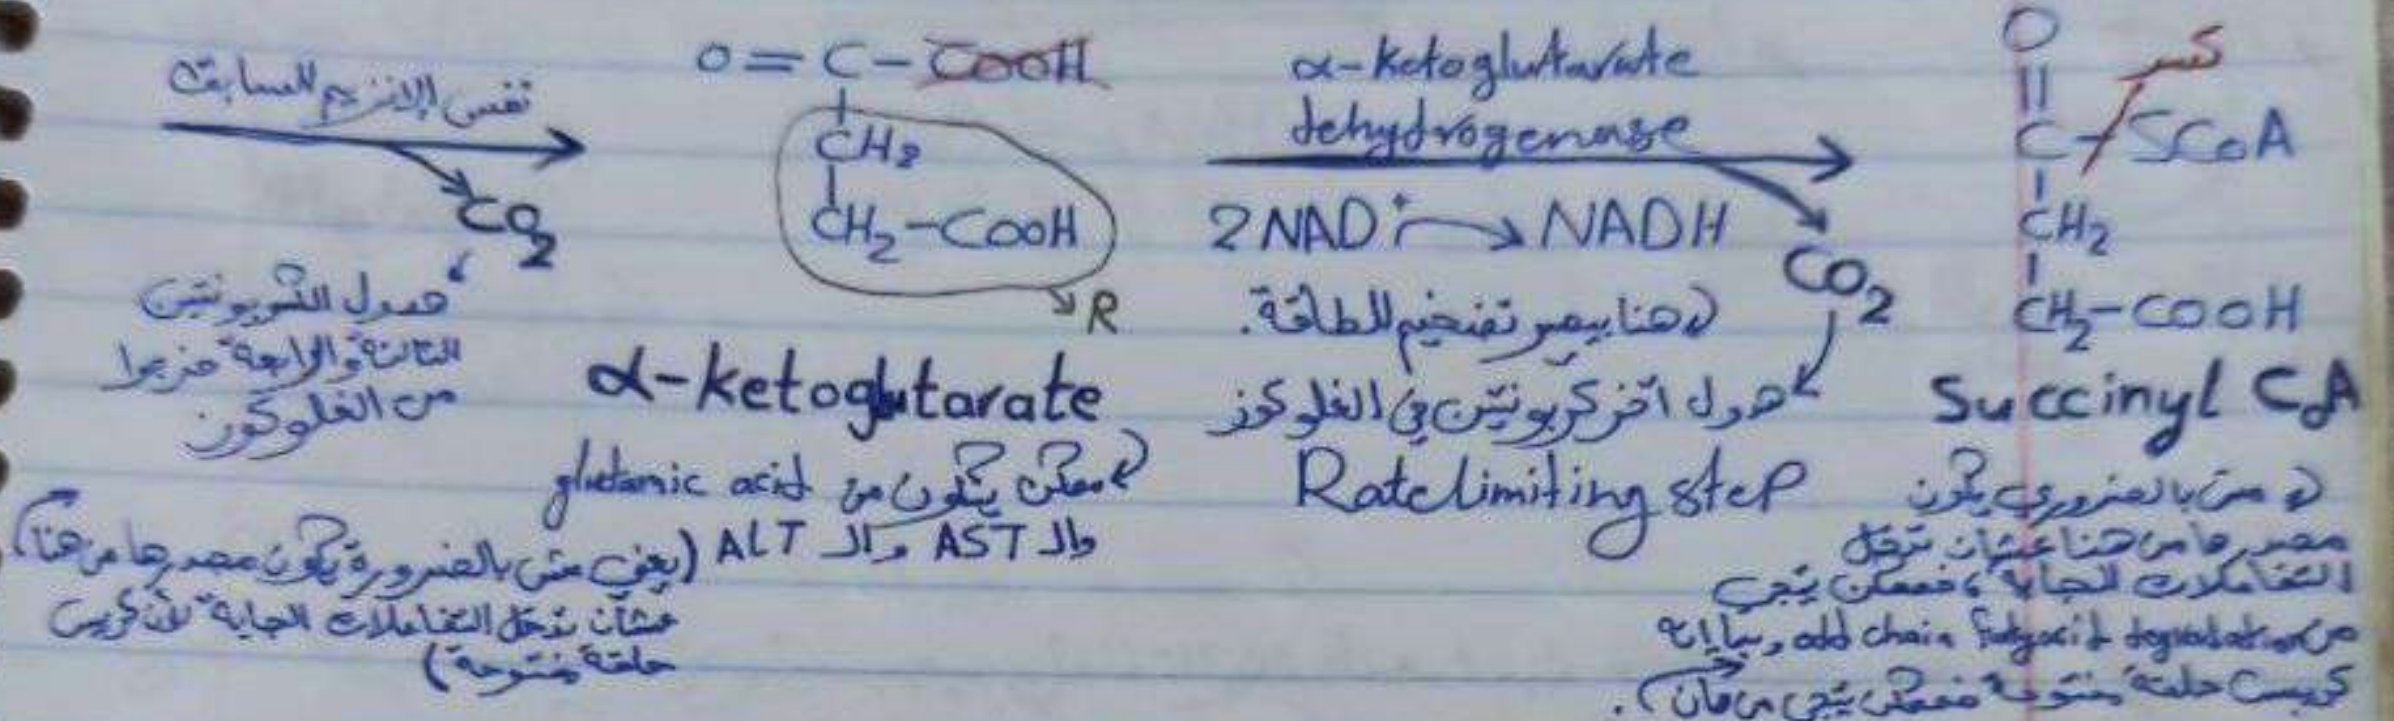 نفس الإنزيم السابق
CO2
هدول الكربونتين
الثالثة والرابعة خزبوا
من الغلوكوز
O = C - COOH
CH2
CH2-COOH
R
α-ketoglutarate
ممكن يتكون من glutamic acid
والـ AST والـ ALT (يعني مش بالضرورة يكون مصدرها من هنا
عشان تدخل التفاعلات الجاية لأن كريبس
حلقة مفتوحة)
α-ketoglutarate
dehydrogenase
2NAD+ → NADH
CO2
هنا بيصير تضخيم للطاقة.
هدول آخر كربونتين في الغلوكوز
Rate limiting step
O
كسر
C - SCoA
CH2
CH2-COOH
Succinyl CoA
مش بالضروري يكون
مصدرها من هنا عشان تدخل
التفاعلات الجاية، فممكن يجي
من odd chain fatty acid degradation وبما إنه
كريبس حلقة مفتوحة فممكن يجي من مكان).